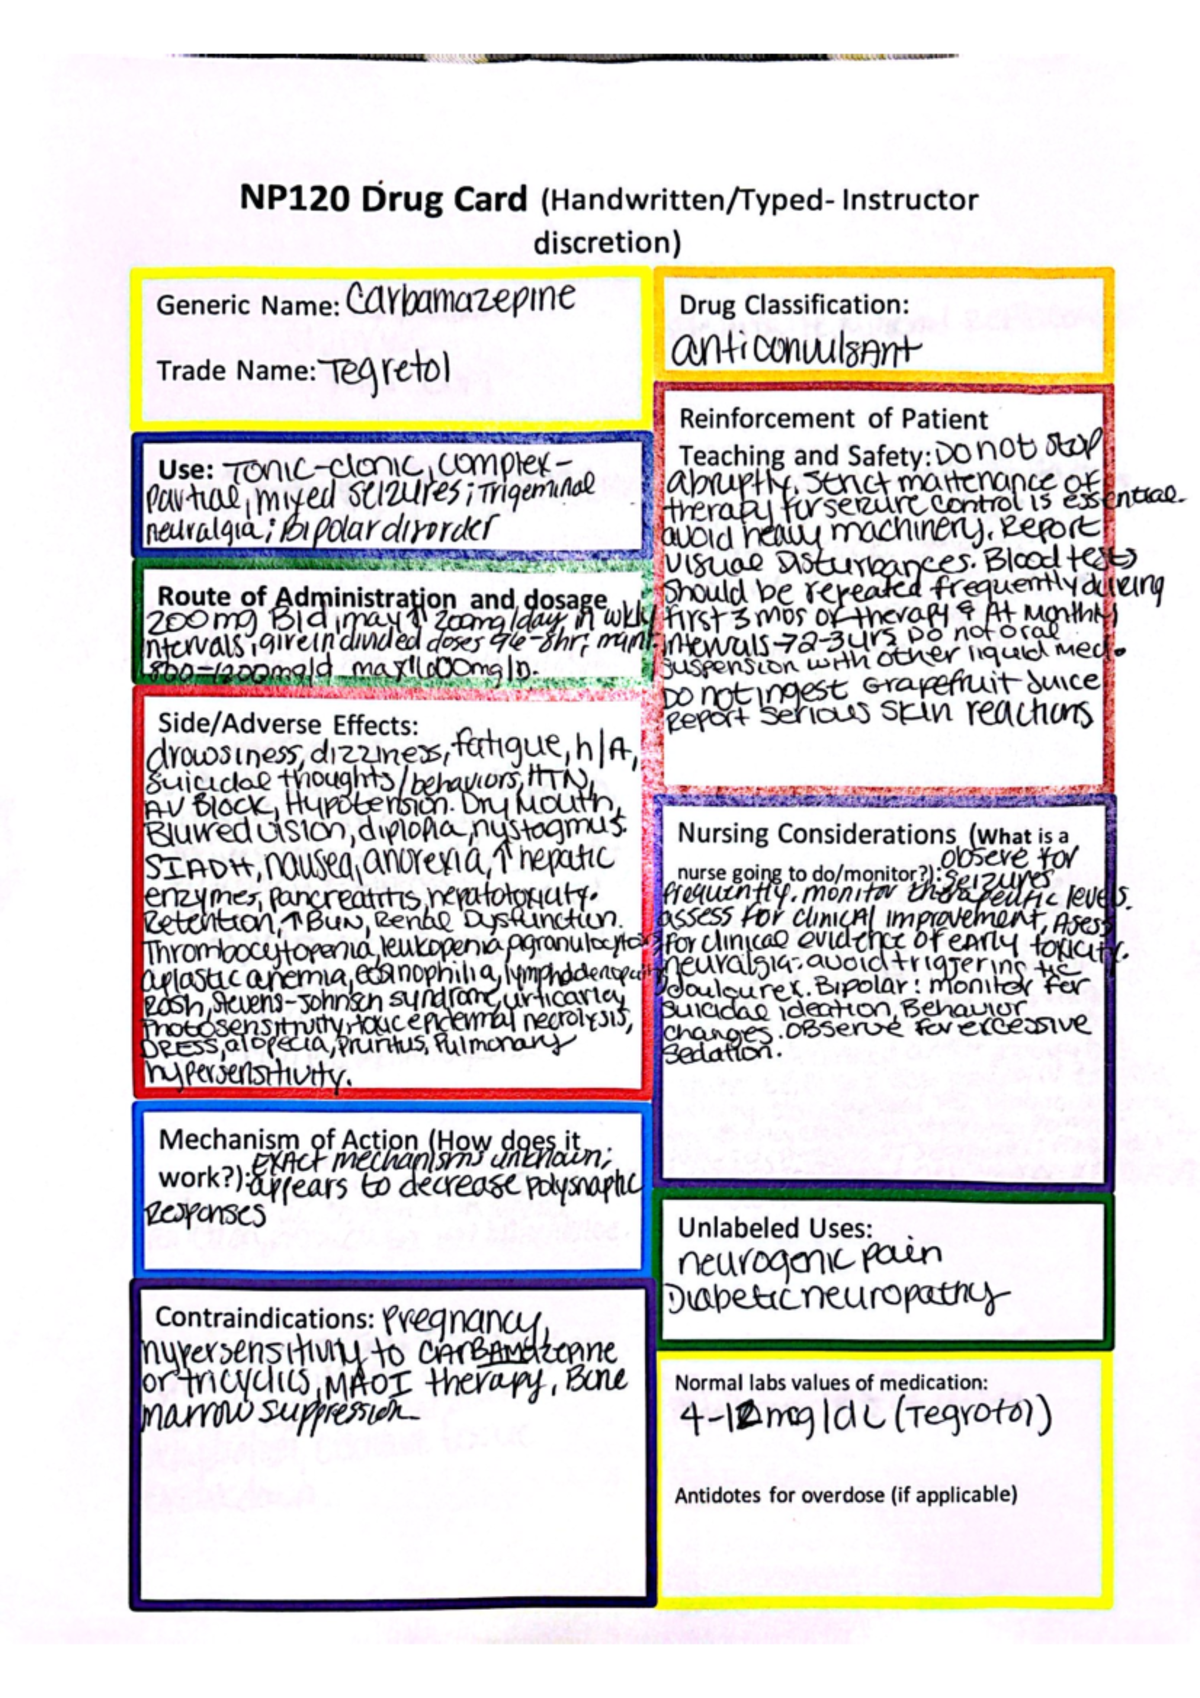 NP120 Drug Card (Handwritten/Typed- Instructor
discretion)
Generic Name: Carbamazepine
Trade Name: Tegretol
Use: Tonic-clonic, complex-
partial, mixed seizures; Trigeminal
neuralgia; bipolar disorder
Route of Administration and dosage
200mg Bid, may ↑ 200mg/day in wkly
intervals, give in divided doses q6-8hr; maint
800-1200mg/d max 1600mg/D.
Side/Adverse Effects:
drowsiness, dizziness, fatigue, h/A,
suicidal thoughts/behaviors, HTN,
AV Block, Hypotension. Dry Mouth,
Blurred vision, diplopia, nystagmus.
SIADH, nausea, anorexia, ↑ hepatic
enzymes, pancreatitis, hepatotoxicity.
Retention, ↑BUN, Renal Dysfunction.
Thrombocytopenia, leukopenia, agranulocytosis
aplastic anemia, eosinophilia, lymphadenopathy
Rash, Stevens-Johnson syndrome, urticaria,
Photosensitivity, toxic epidermal necrolysis,
DRESS, alopecia, Pruritus, Pulmonary
hypersensitivity.
Mechanism of Action (How does it
work?): Exact mechanisms unknown;
appears to decrease polysnaptic
Responses
Contraindications: Pregnancy,
hypersensitivity to CARBAMazepine
or tricyclics, MAOI therapy, Bone
marrow suppression
Drug Classification:
anticonvulsant
Reinforcement of Patient
Teaching and Safety: DO not stop
Abruptly. Strict maitenance of
therapy for seizure control is essential.
avoid heavy machinery. Report
Visual Disturbances. Blood tests
should be repeated frequently during
first 3 mos of therapy & At Monthly
intervals → 2-3 yrs Do not oral
suspension with other liquid med.
Do not ingest Grapefruit Juice
Report serious skin reactions
Nursing Considerations (What is a
nurse going to do/monitor?): obseve for
seizures
frequently. monitor therapeutic levels.
assess for clinical improvement, Asess
for clinical evidence of early toxicity.
neuralgia: avoid triggering tic
doulourex. Bipolar: monitor for
suicidal ideation, Behavior
changes. Observe for excessive
sedation.
Unlabeled Uses:
neurogenic pain
Diabetic neuropathy
Normal labs values of medication:
4-12 mg/dL (Tegrotol)
Antidotes for overdose (if applicable)